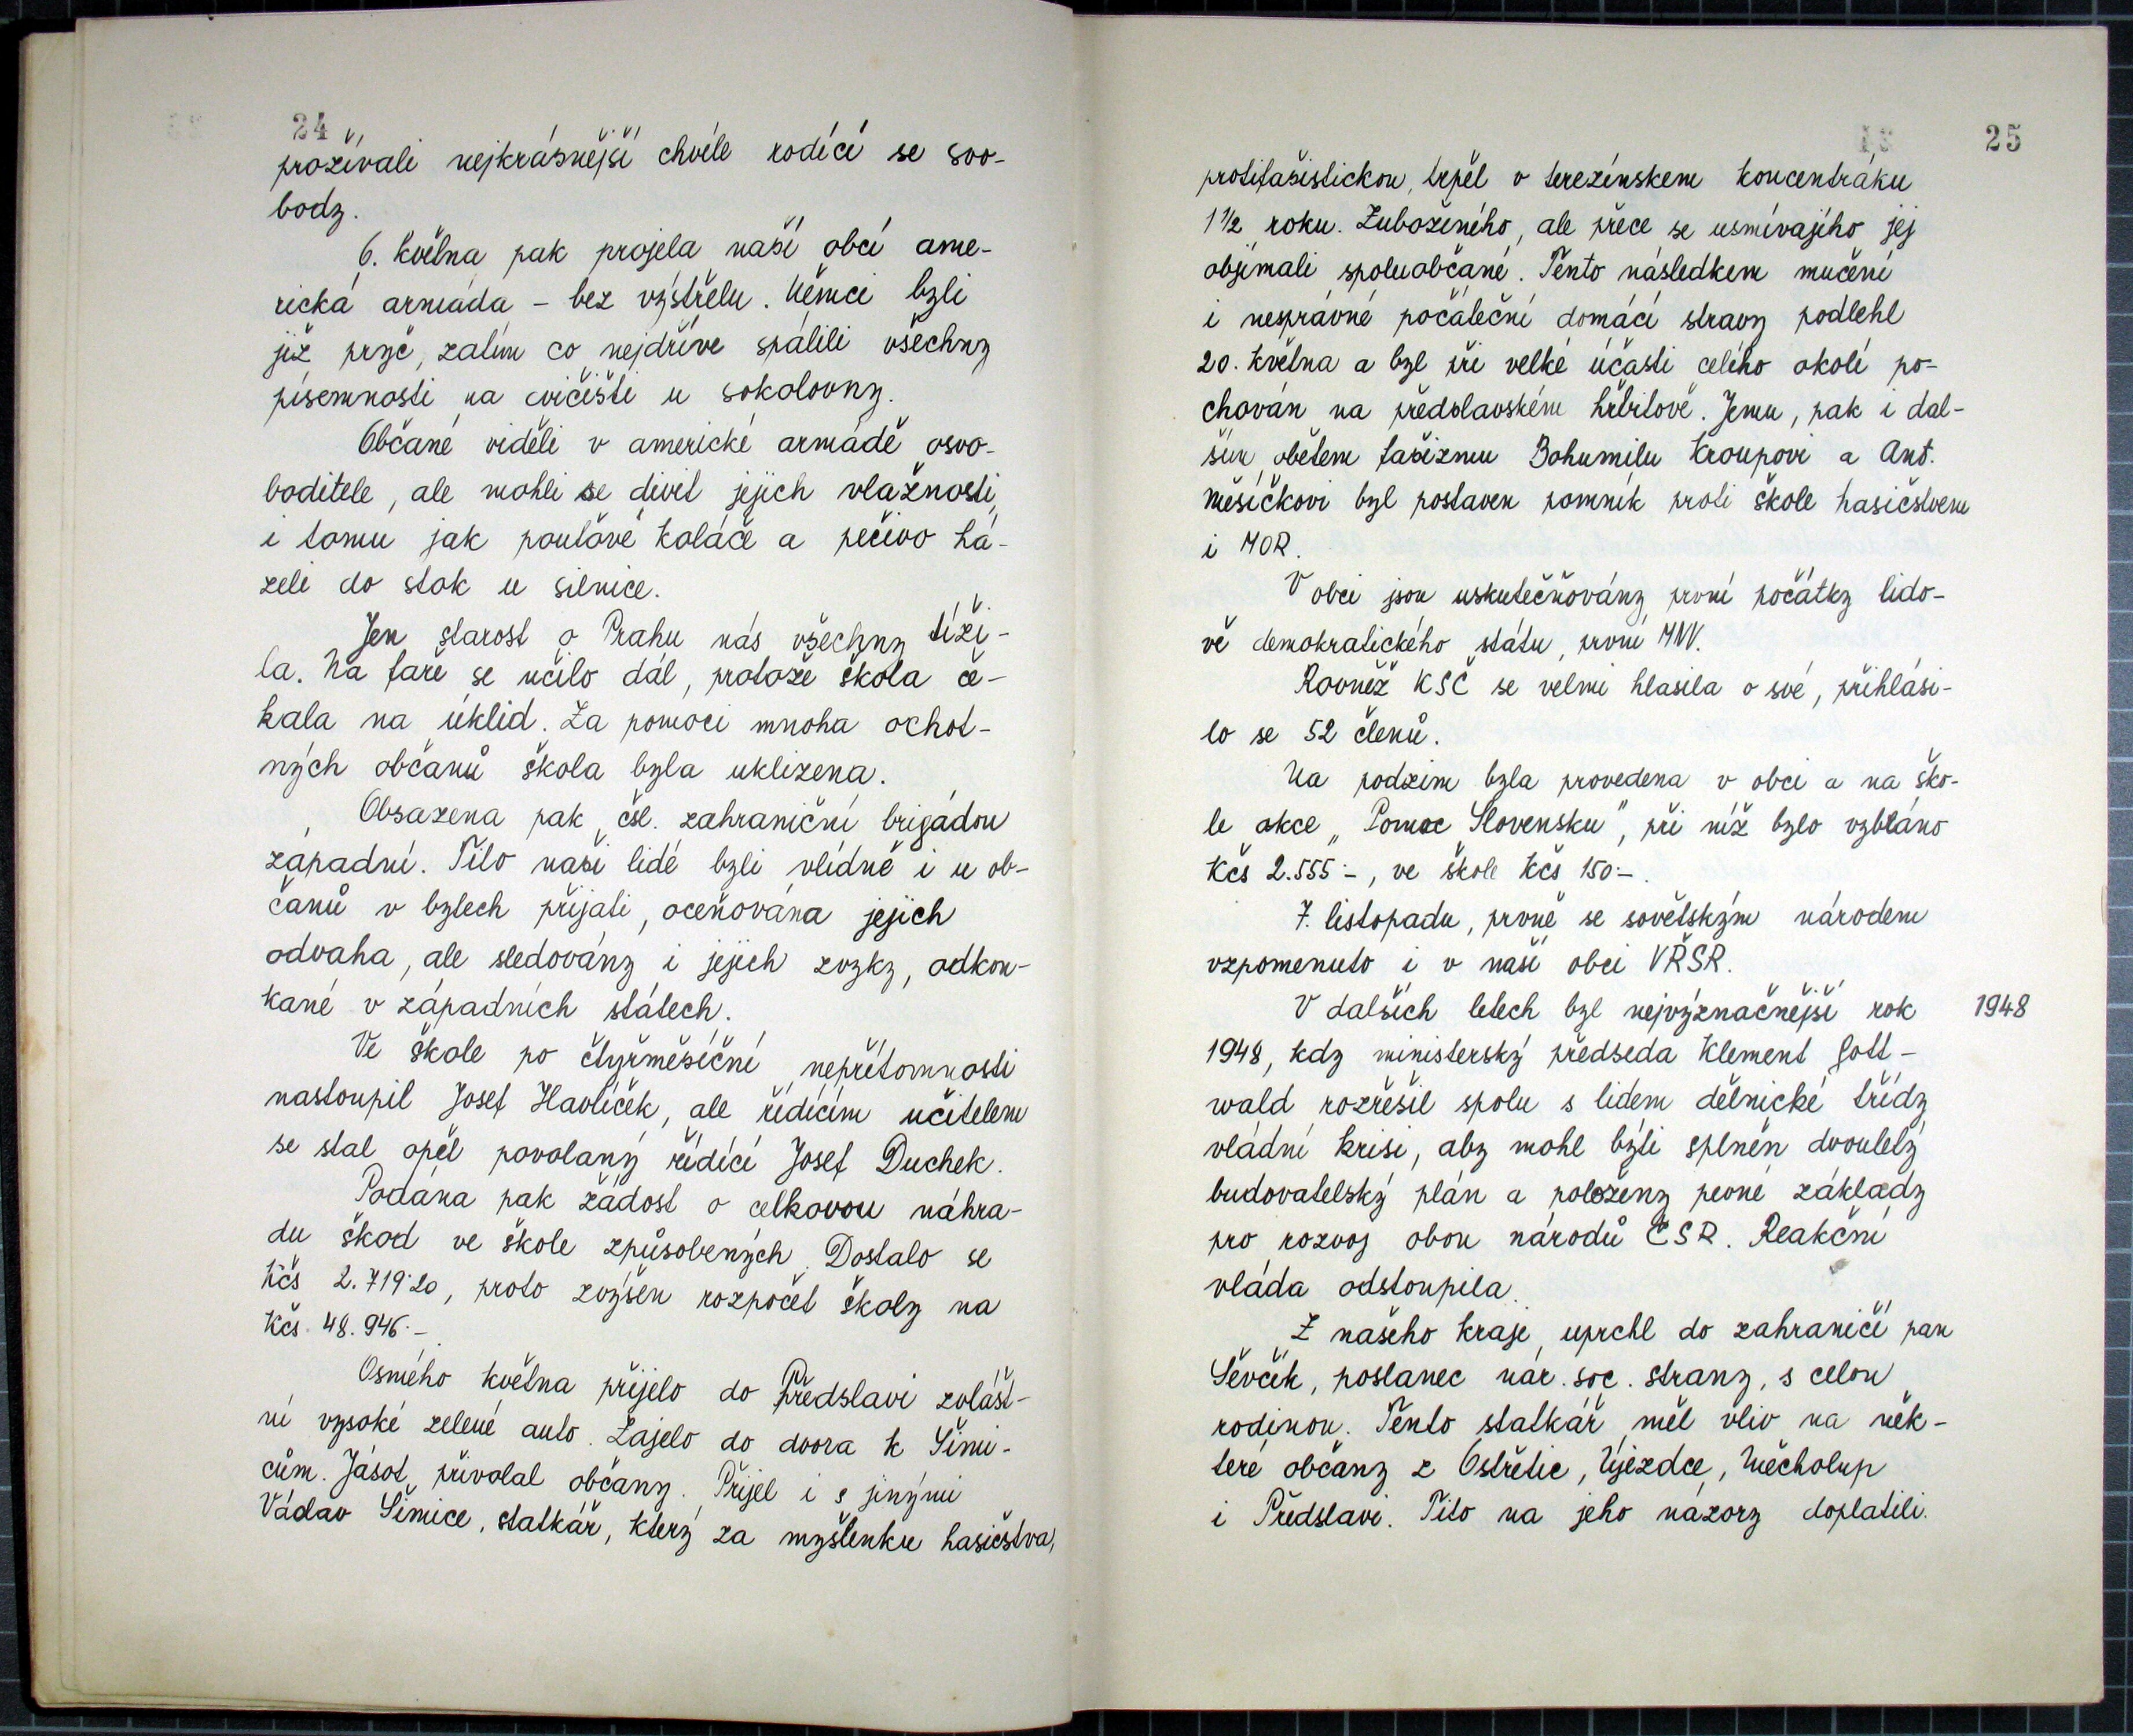 24
prožívali nejkrásnější chvíle rodící se svo-
body.
6. května pak projela naší obcí ame-
rická armáda - bez výstřelu. Němci byli
již pryč, zatím co nejdříve spálili všechny
písemnosti na cvičišti u sokolovny.
Občané viděli v americké armádě osvo-
boditele, ale mohli se divit jejich vlažnosti,
i tomu jak pouťové koláče a pečivo há-
zeli do stok u silnice.
Jen starost o Prahu nás všechny tíži-
la. Na faře se učilo dál, protože škola če-
kala na úklid. Za pomoci mnoha ochot-
ných občanů škola byla uklizena.
Obsazena pak čsl. zahraniční brigádou
západní. Tito naši lidé byli vlídně i u ob-
čanů v bytech přijati, oceňována jejich
odvaha, ale sledovány i jejich zvyky, odkou-
kané v západních státech.
Ve škole po čtyřměsíční nepřítomnosti
nastoupil Josef Havlíček, ale řídícím učitelem
se stal opět povolaný řídící Josef Duchek.
Podána pak žádost o celkovou náhra-
du škod ve škole způsobených. Dostalo se
Kčs 2.719·20, proto zvýšen rozpočet školy na
Kčs 48.946·-
Osmého května přijelo do Předslavi zvlášt-
ní vysoké zelené auto. Zajelo do dvora k Šimi-
cům. Jásot přivolal občany. Přijel i s jinými
Václav Šimice, statkář, který za myšlenku hasičstva,
25
protifašistickou, trpěl v terezínském koncentráku
1 1/2 roku. Zuboženého, ale přece se usmívajího jej
objímali spoluobčané. Tento následkem mučení
i nesprávné počáteční domácí stravy podlehl
20. května a byl při velké účasti celého okolí po-
chován na předslavském hřbitově. Jemu, pak i dal-
ším obětem fašizmu Bohumilu Kroupovi a Ant.
Měsíčkovi byl postaven pomník proti škole hasičstvem
i MOR.
V obci jsou uskutečňovány první počátky lido-
vě demokratického státu, první MNV.
Rovněž KSČ se velmi hlasila o své, přihlási-
lo se 52 členů.
Na podzim byla provedena v obci a na ško-
le akce „Pomoc Slovensku", při níž bylo vybráno
Kčs 2.555·-, ve škole Kčs 150·-.
7. listopadu, prvně se sovětským národem
vzpomenuto i v naší obci VŘSR.
V dalších letech byl nejvýznačnější rok
1948
1948, kdy ministerský předseda Klement Gott-
wald rozřešil spolu s lidem dělnické třídy
vládní krisi, aby mohl býti splněn dvouletý
budovatelský plán a položeny pevné základy
pro rozvoj obou národů ČSR. Reakční
vláda odstoupila.
Z našeho kraje uprchl do zahraničí pan
Ševčík, poslanec nár. soc. strany, s celou
rodinou. Tento statkář měl vliv na něk-
teré občany z Ostřetic, Újezdce, Měcholup
i Předslavi. Tito na jeho názory doplatili.